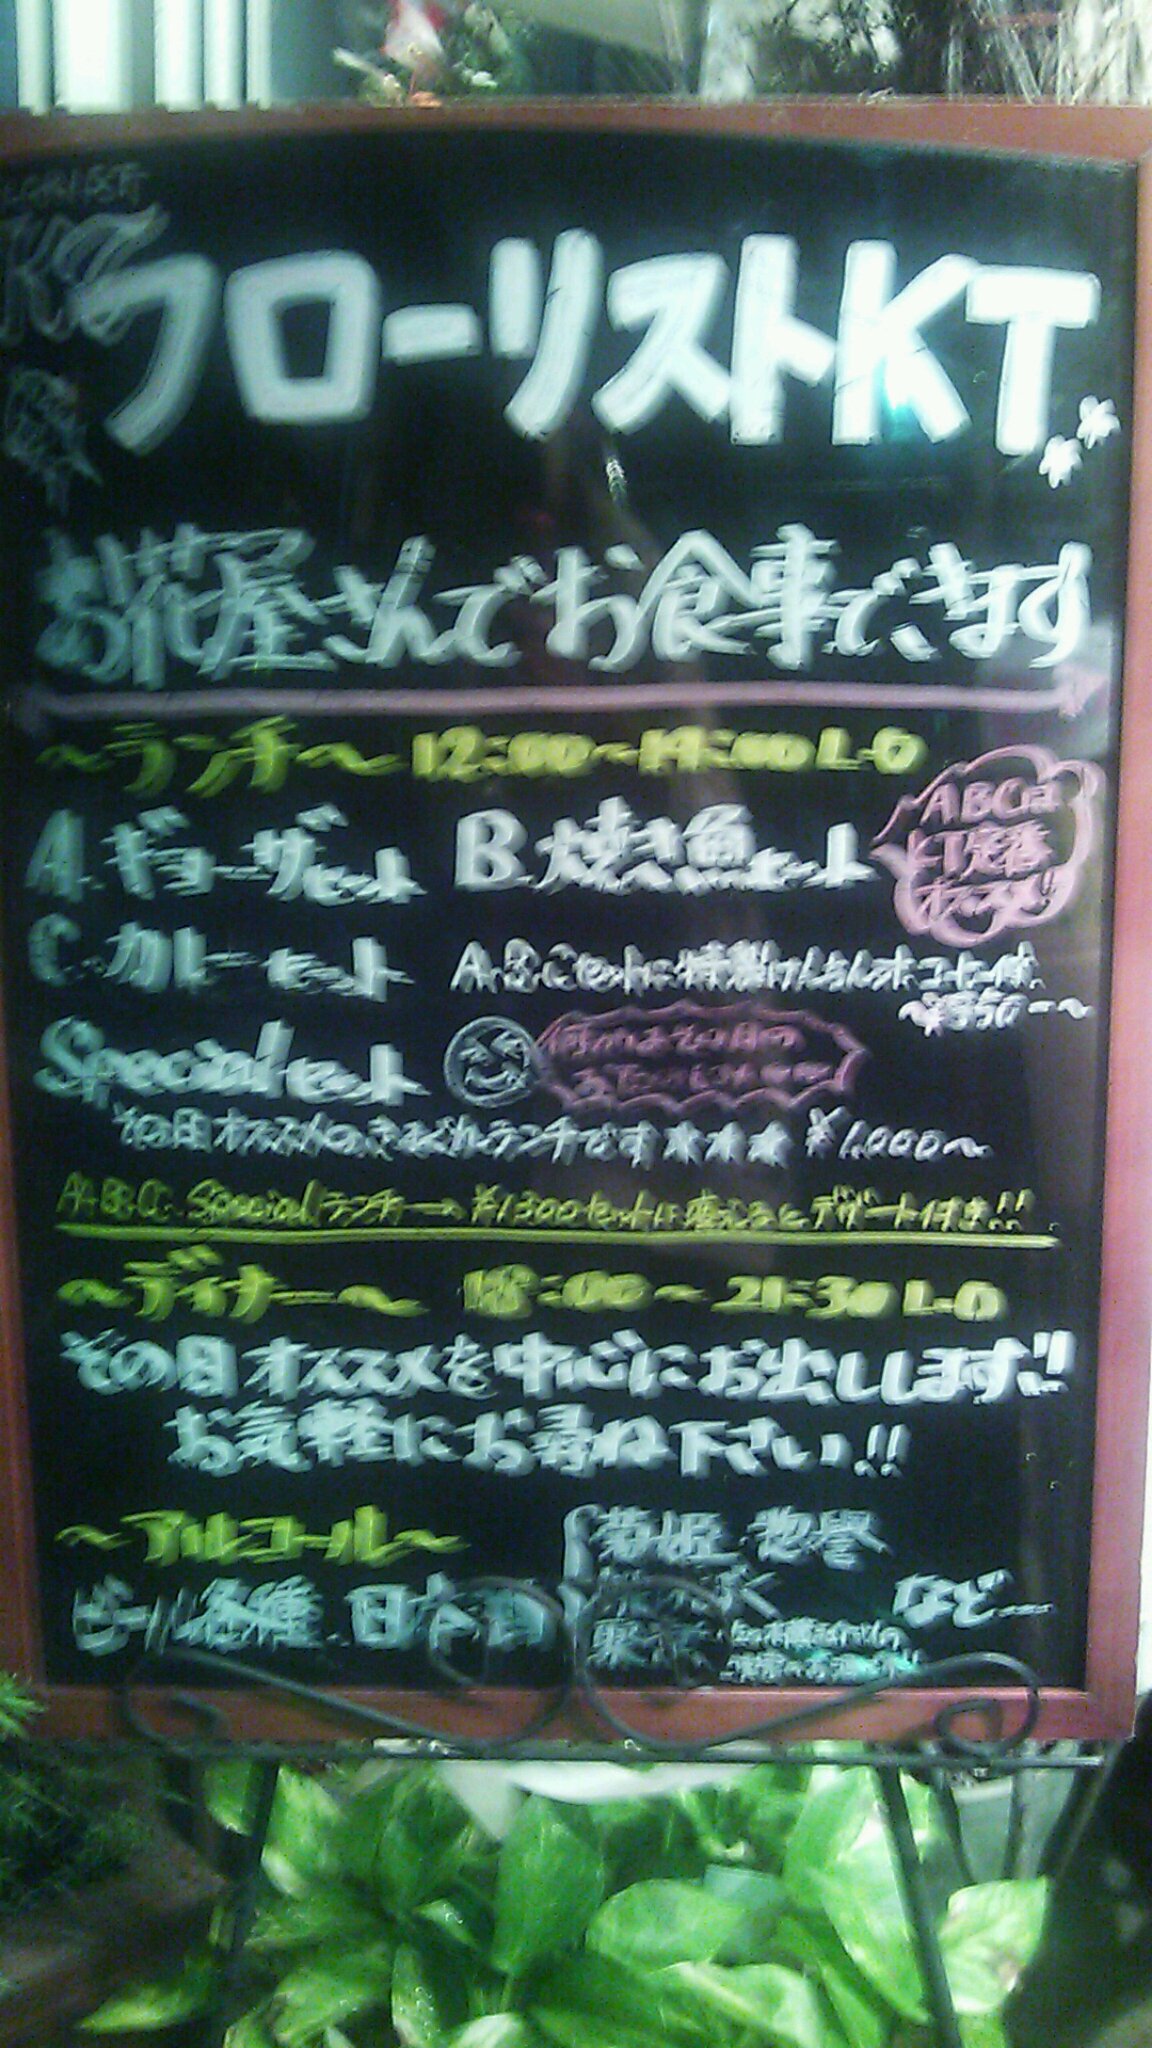 フローリストKT
お花屋さんでお食事できます
〜ランチ〜 12:00〜14:00 L.O
A.ギョーザセット B.焼き魚セット
ABCは
KT定番
オススメ!!
C.カレーセット A.B.Cセットに特製けんちんオコト付
〜
Specialセット
その日オススメのきまぐれランチです★★★ ¥1,000〜
A.B.C. Specialランチ ¥1300セットに変えるとデザート付き!!
〜ディナー〜 18:00〜21:30 L.O
その日オススメを中心にお出しします!!
お気軽にお尋ね下さい!!
〜アルコール〜
ビール各種、日本酒
菊姫 惣誉
など